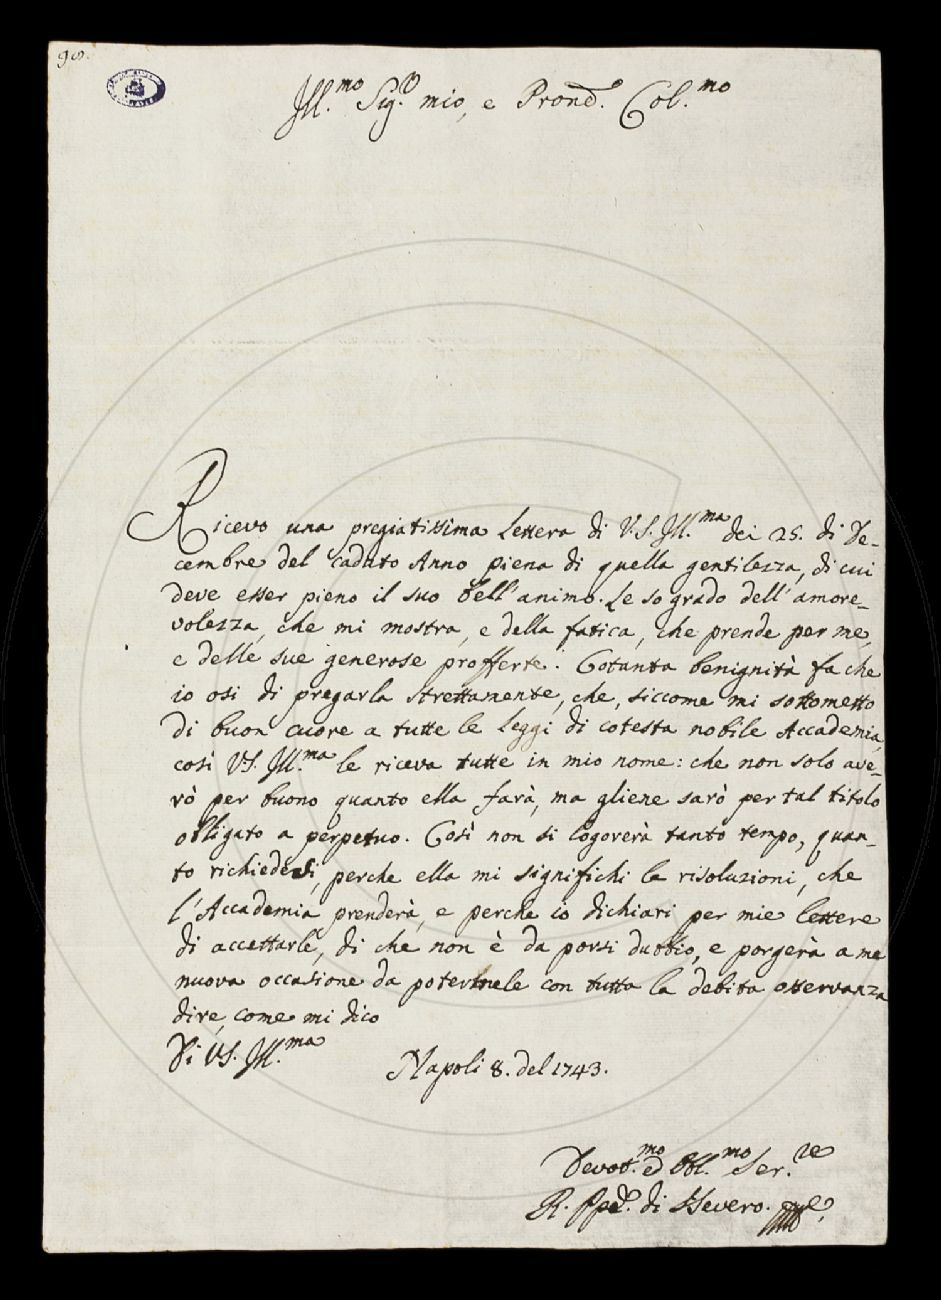 98.
Jll.mo Sig.r mio, e Prone. Col.mo
Ricevo una pregiatissima Lettera di V.S. Jll.ma dei 25. di De-
cembre del caduto Anno piena di quella gentilezza, di cui
deve esser pieno il suo bell'animo. Le so grado dell'amore-
volezza, che mi mostra, e della fatica, che prende per me,
e delle sue generose profferte. Cotanta benignità fa che
io osi di pregarla strettamente, che, siccome mi sottometto
di buon cuore a tutte le leggi di cotesta nobile Accademia,
così VS. Jll.ma le riceva tutte in mio nome: che non solo ave-
rò per buono quanto ella farà, ma gliene sarò per tal titolo
obligato a perpetuo. Così non si logorerà tanto tempo, quan-
to richiedesi, perche ella mi significhi le risoluzioni, che
l'Accademia prenderà, e perche io dichiari per mie lettere
di accettarle, di che non è da porsi dubbio, e porgerà a me
nuova occasione da potermele con tutta la debita osservanza
dire, come mi dico
Di VS. Jll.ma
Napoli 8. del 1743.
Devot.mo ed Obl.mo Ser.re
R. Ppe. di S.Severo.